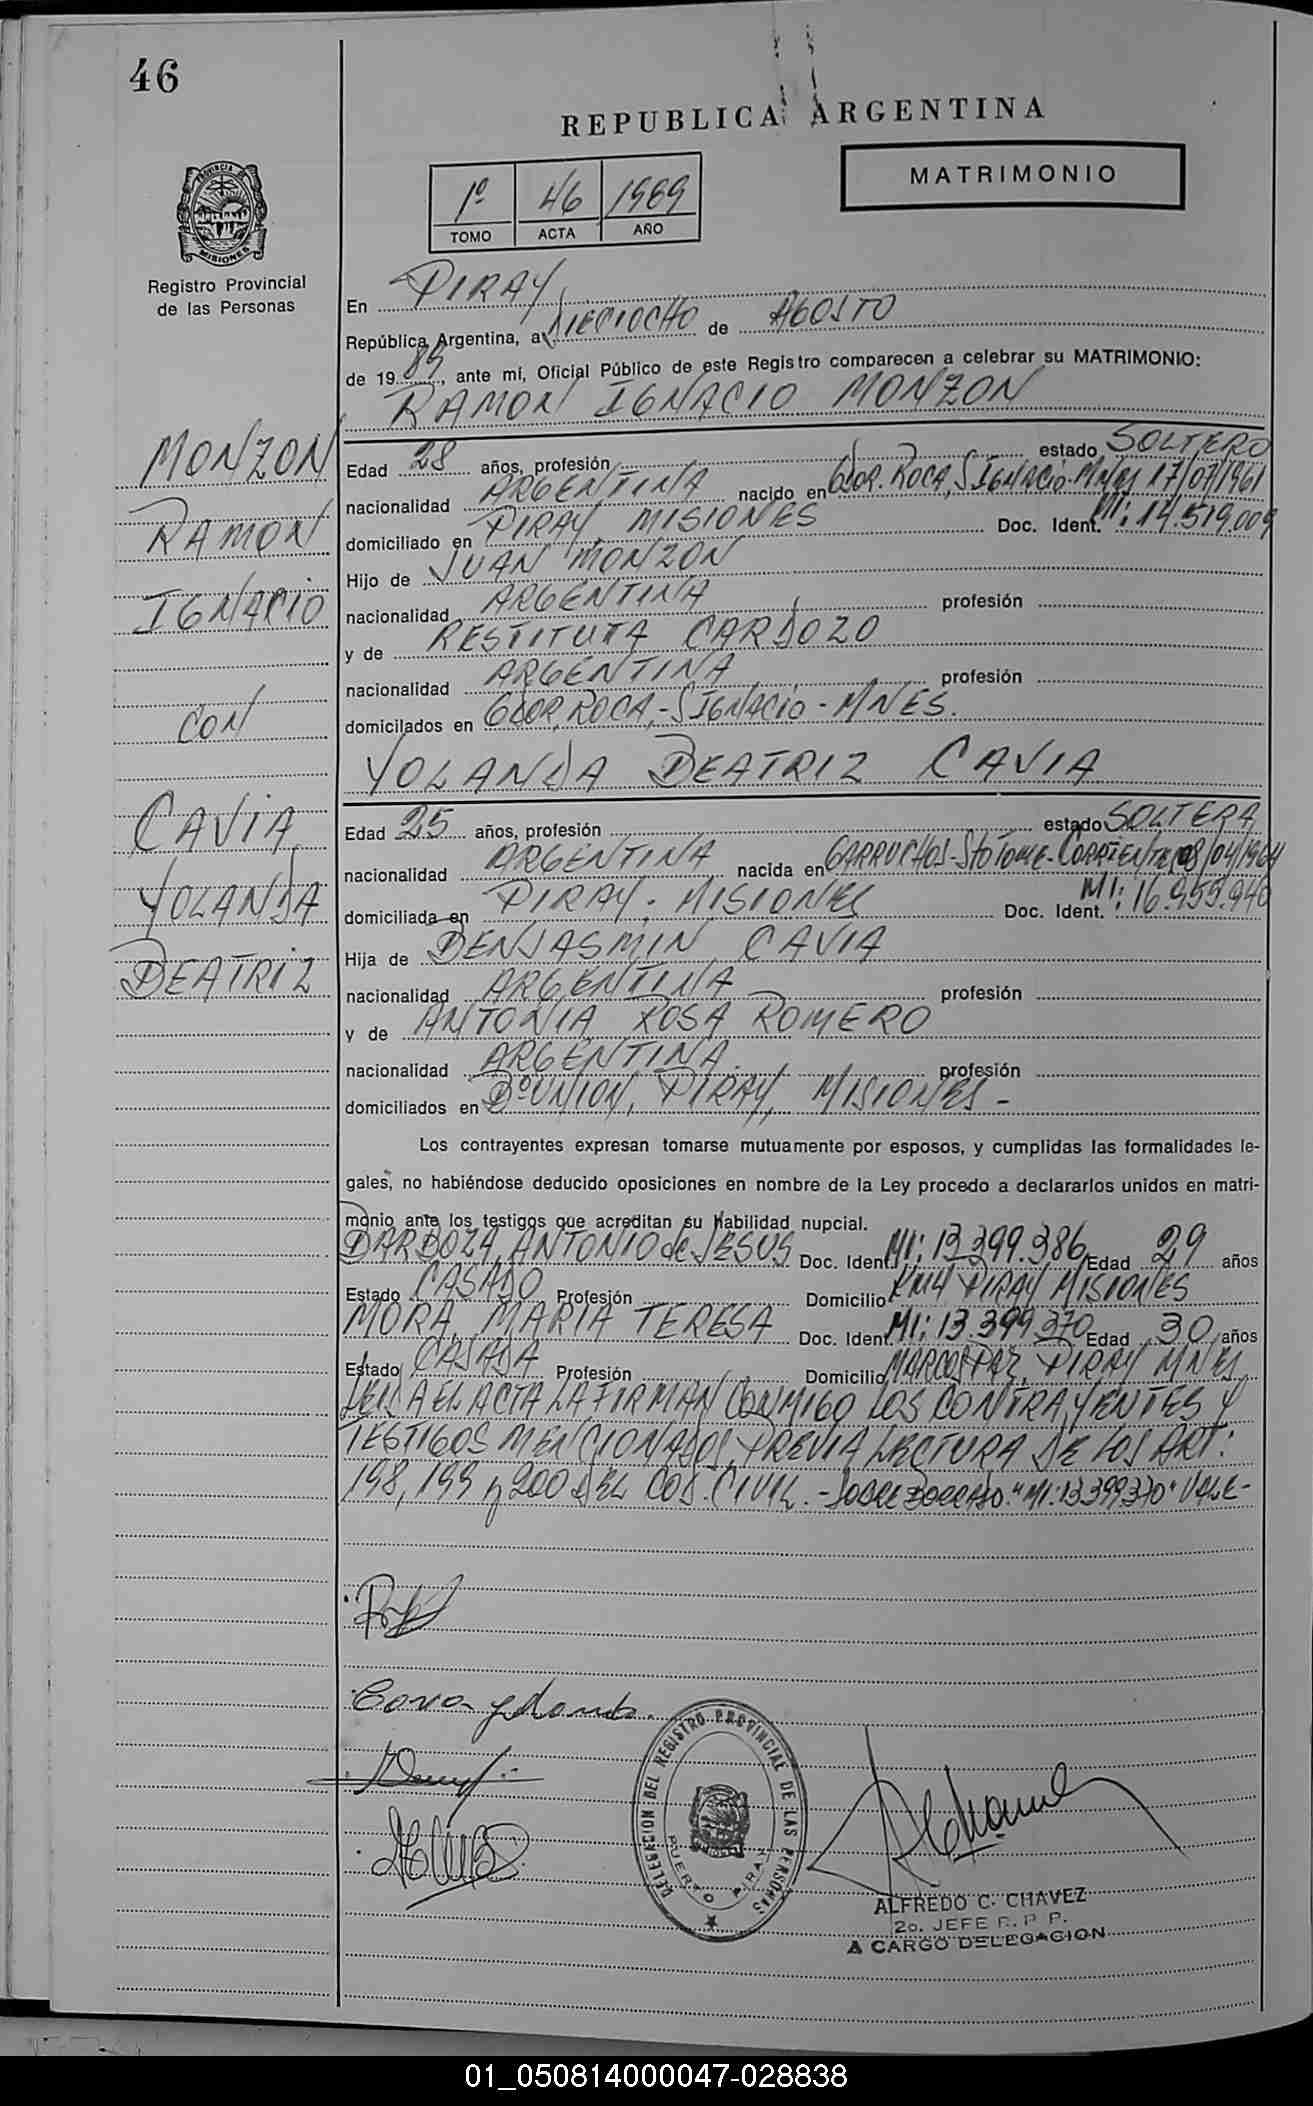 46
REPUBLICA ARGENTINA
MATRIMONIO
1º 46 1989
TOMO ACTA AÑO
PROVINCIA DE MISIONES
Registro Provincial
de las Personas
En PIRAY
República Argentina, a DIECIOCHO de AGOSTO
de 19 89, ante mí, Oficial Público de este Registro comparecen a celebrar su MATRIMONIO:
RAMON IGNACIO MONZON
MONZON
RAMON
IGNACIO
CON
CAVIA
YOLANDA
BEATRIZ
Edad 28 años, profesión estado SOLTERO
nacionalidad ARGENTINA nacido en Gdor. ROCA, S IGNACIO-Mnes 17/07/1961
domiciliado en PIRAY, MISIONES Doc. Ident. MI: 14.519.009
Hijo de JUAN MONZON
nacionalidad ARGENTINA profesión
y de RESTITUTA CARDOZO
nacionalidad ARGENTINA profesión
domicilados en Gdor, ROCA,-S IGNACIO-MNES.
YOLANDA BEATRIZ CAVIA
Edad 25 años, profesión estado SOLTERA
nacionalidad ARGENTINA nacida en GARRUCHOS-StO TOME-CORRIENTES 08/04/1964
domiciliada en PIRAY, MISIONES Doc. Ident. MI: 16.959.940
Hija de BENJASMIN CAVIA
nacionalidad ARGENTINA profesión
y de ANTONIA ROSA ROMERO
nacionalidad ARGENTINA profesión
domiciliados en Bº UNION, PIRAY, MISIONES-
Los contrayentes expresan tomarse mutuamente por esposos, y cumplidas las formalidades le-
gales, no habiéndose deducido oposiciones en nombre de la Ley procedo a declararlos unidos en matri-
monio ante los testigos que acreditan su habilidad nupcial.
BARBOZA, ANTONIO de JESUS Doc. Ident. MI: 13.399.386 Edad 29 años
Estado CASADO Profesión Domicilio KM4 PIRAY MISIONES
MORA, MARIA TERESA Doc. Ident. MI: 13.399.370 Edad 30 años
Estado CASADA Profesión Domicilio MARCOS PAZ, PIRAY MNES
LEIDA EL ACTA LA FIRMAN CONMIGO LOS CONTRAYENTES Y
TESTIGOS MENCIONADOS, PREVIA LECTURA DE LOS ART:
198, 199 y 200 DEL COD. CIVIL.-SOBRE BORRADO: "MI: 13.399.370" VALE-
DELEGACION DEL REGISTRO PROVINCIAL DE LAS PERSONAS
PUERTO PIRAY
ALFREDO C. CHAVEZ
2o. JEFE R. P. P.
A CARGO DELEGACION
01_050814000047-028838